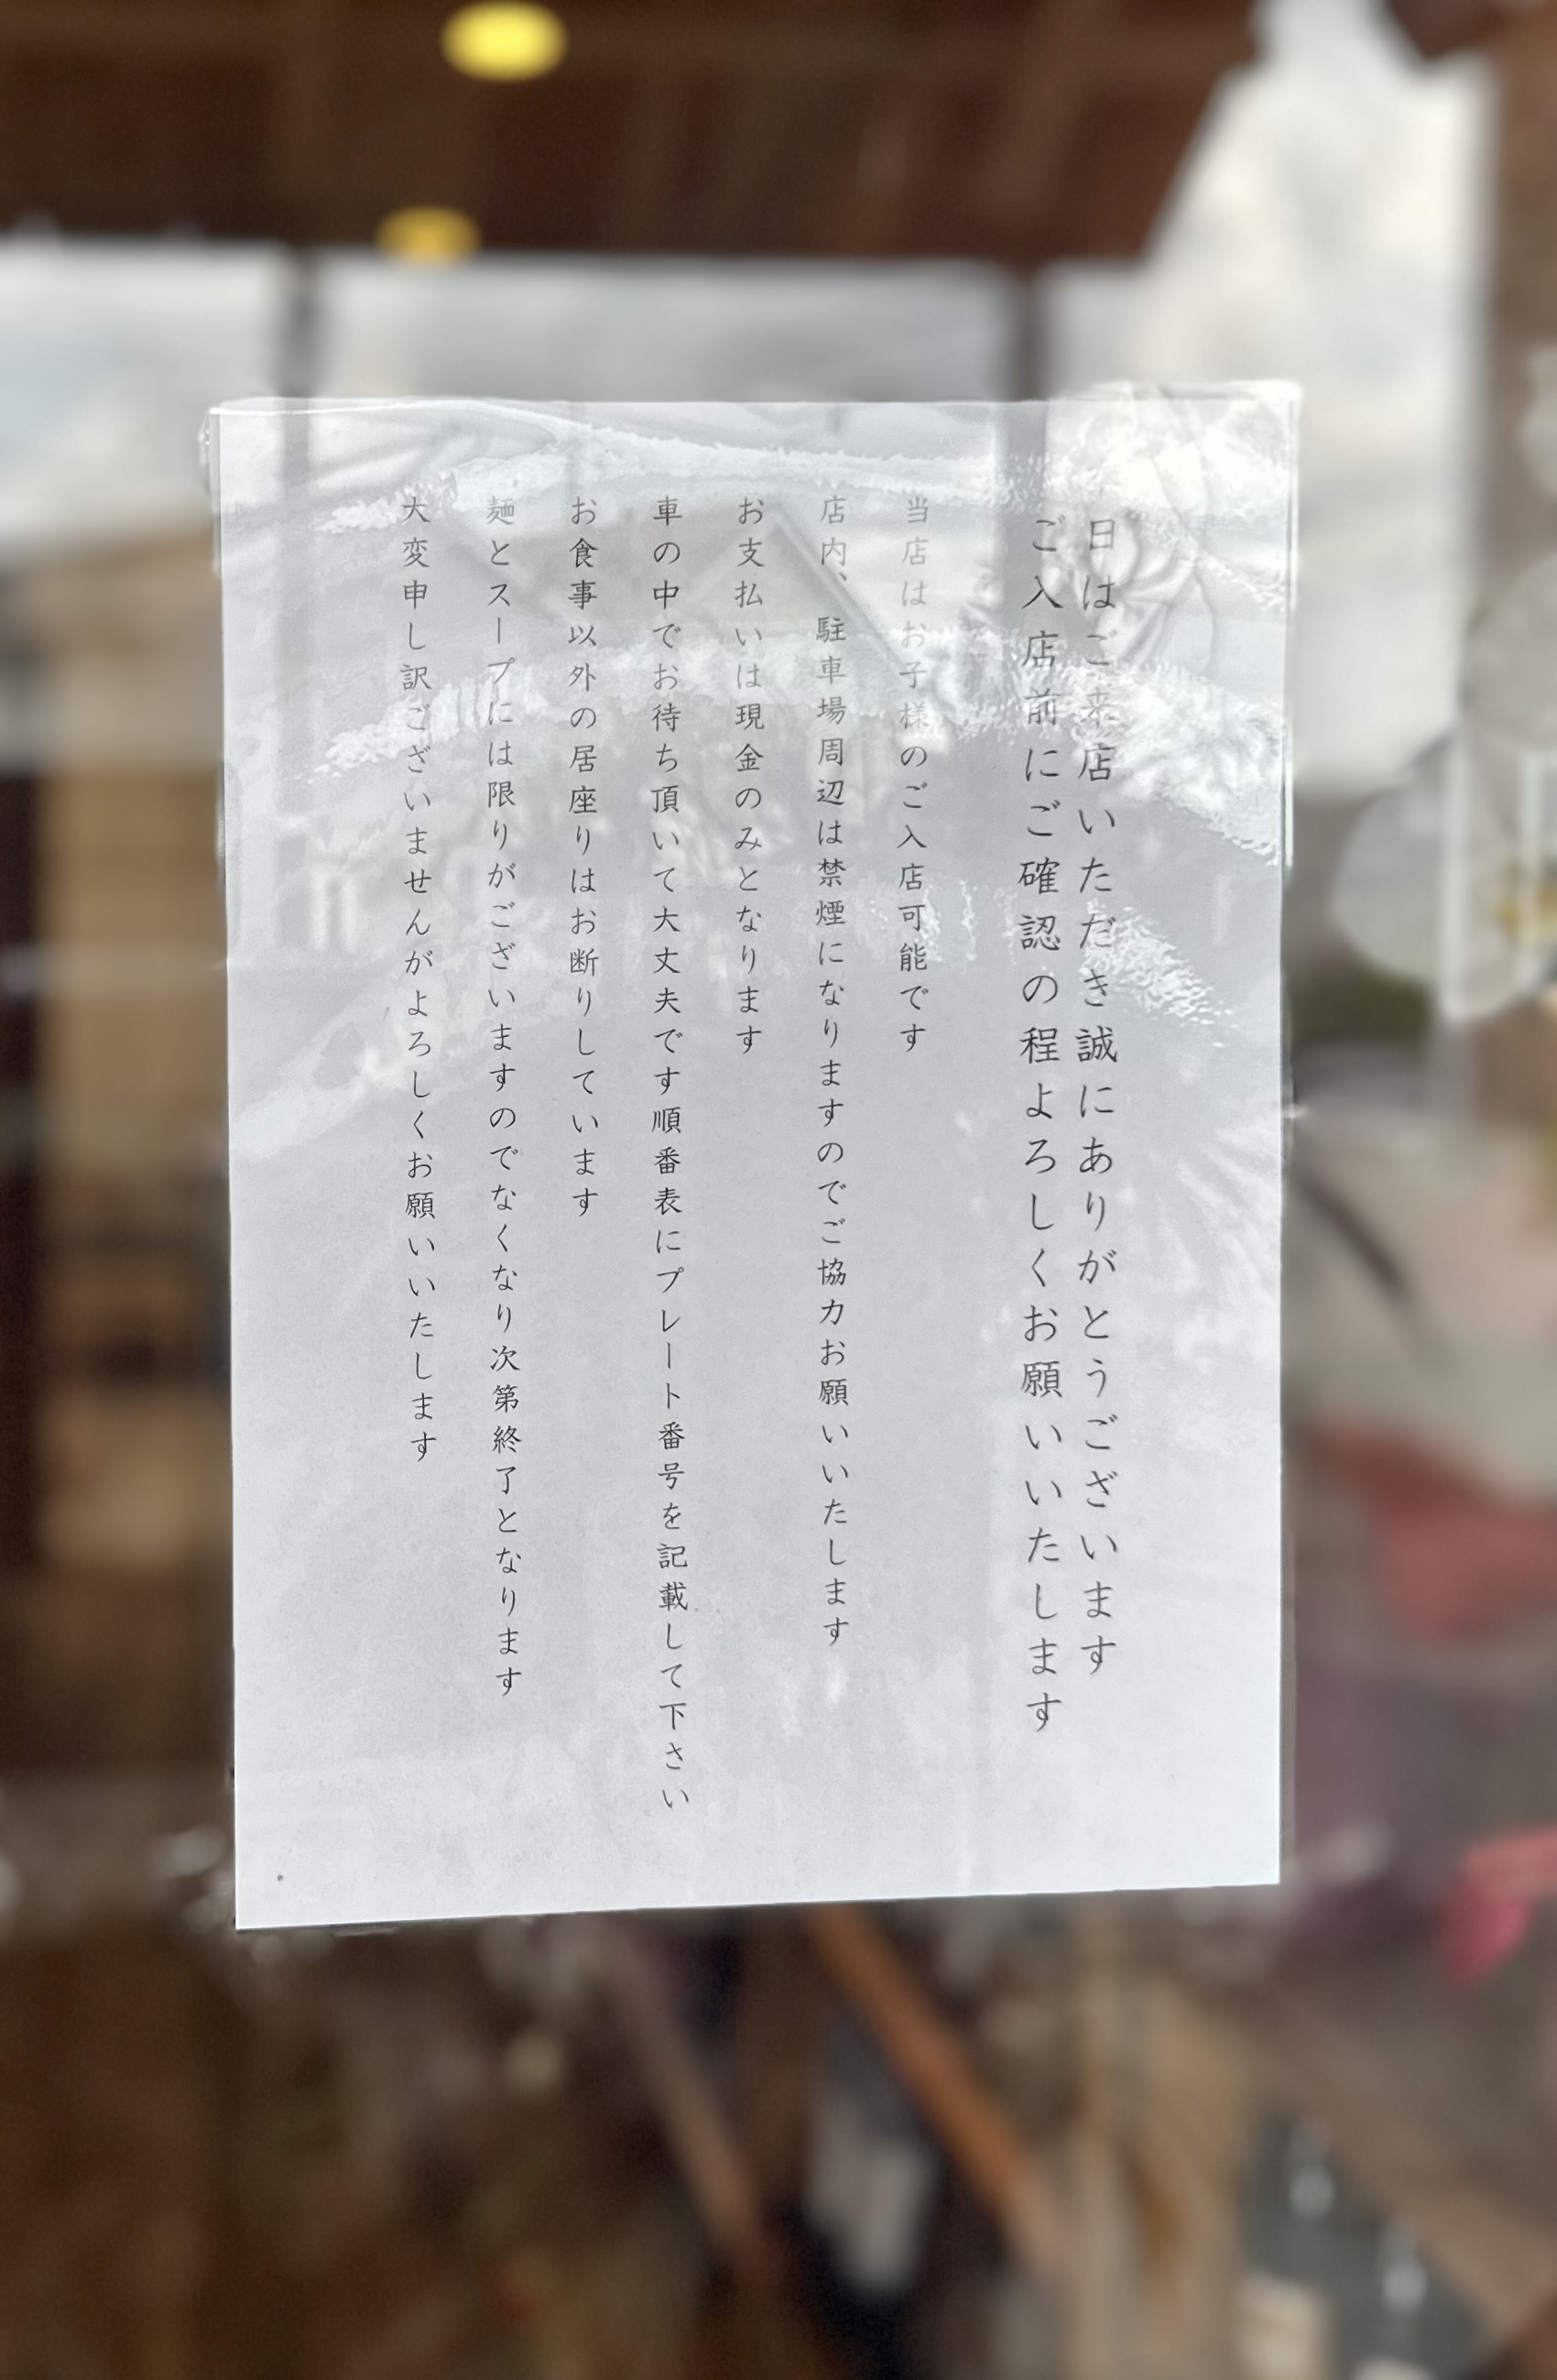 本日はご来店いただき誠にありがとうございます
ご入店前にご確認の程よろしくお願いいたします
当店はお子様のご入店可能です
店内、駐車場周辺は禁煙になりますのでご協力お願いいたします
お支払いは現金のみとなります
車の中でお待ち頂いて大丈夫です順番表にプレート番号を記載して下さい
お食事以外の居座りはお断りしています
麺とスープには限りがございますのでなくなり次第終了となります
大変申し訳ございませんがよろしくお願いいたします